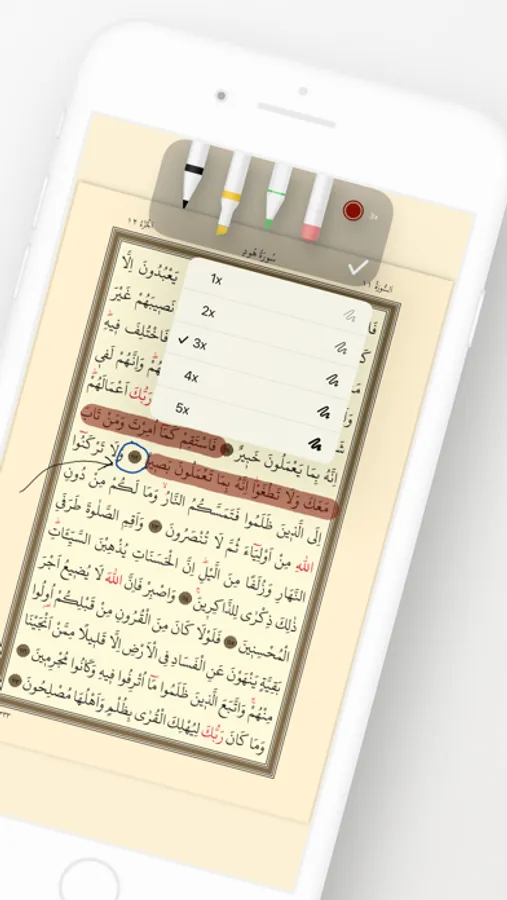 3x
الجزء ١٢
سُورَةُ هُودٍ
السورة ١١
1x
2x
✓ 3x
4x
5x
يَعْبُدُونَ اِلَّا
نَصِيبَهُمْ غَيْرَ
فَاخْتُلِفَ فِيهِ
وَاِنَّهُمْ لَفِي
رَبُّكَ اَعْمَالَهُمْ
اِنَّهُ بِمَا يَعْمَلُونَ خَبِيرٌ فَاسْتَقِمْ كَمَا اُمِرْتَ وَمَنْ تَابَ
مَعَكَ وَلَا تَطْغَوْا اِنَّهُ بِمَا تَعْمَلُونَ بَصِيرٌ وَلَا تَرْكَنُوا
اِلَى الَّذِينَ ظَلَمُوا فَتَمَسَّكُمُ النَّارُ وَمَا لَكُمْ مِنْ دُونِ
اللّٰهِ مِنْ اَوْلِيَاءَ ثُمَّ لَا تُنْصَرُونَ وَاَقِمِ الصَّلٰوةَ طَرَفَيِ
النَّهَارِ وَزُلَفًا مِنَ الَّيْلِ اِنَّ الْحَسَنَاتِ يُذْهِبْنَ السَّيِّئَاتِ
ذٰلِكَ ذِكْرٰى لِلذَّاكِرِينَ وَاصْبِرْ فَاِنَّ اللّٰهَ لَا يُضِيعُ اَجْرَ
الْمُحْسِنِينَ فَلَوْلَا كَانَ مِنَ الْقُرُونِ مِنْ قَبْلِكُمْ اُولُوا
بَقِيَّةٍ يَنْهَوْنَ عَنِ الْفَسَادِ فِي الْاَرْضِ اِلَّا قَلِيلًا مِمَّنْ اَنْجَيْنَا
مِنْهُمْ وَاتَّبَعَ الَّذِينَ ظَلَمُوا مَا اُتْرِفُوا فِيهِ وَكَانُوا مُجْرِمِينَ
وَمَا كَانَ رَبُّكَ لِيُهْلِكَ الْقُرٰى بِظُلْمٍ وَاَهْلُهَا مُصْلِحُونَ
٢٣٣